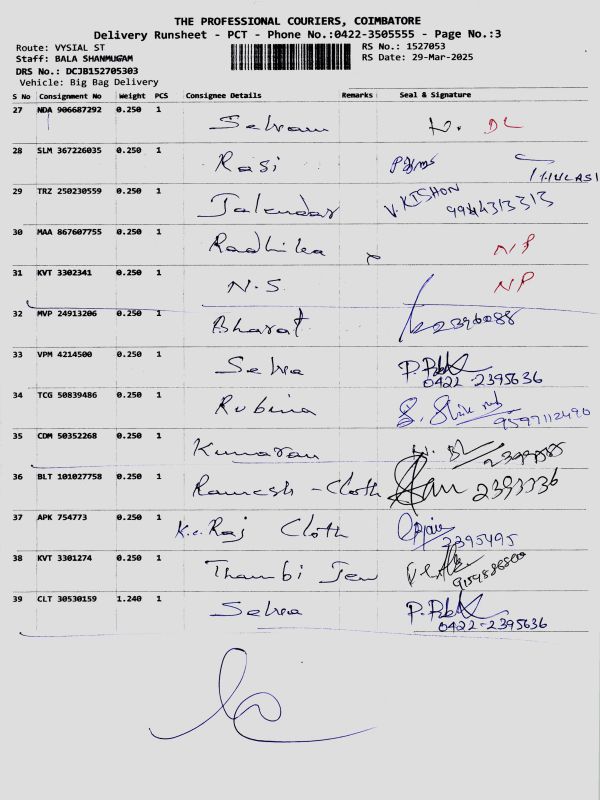 THE PROFESSIONAL COURIERS, COIMBATORE
Delivery Runsheet - PCT - Phone No.:0422-3505555 - Page No.:3
Route: VYSIAL ST RS No.: 1527053
Staff: BALA SHANMUGAM RS Date: 29-Mar-2025
DRS No.: DCJB152705303
Vehicle: Big Bag Delivery
S No Consignment No Weight PCS Consignee Details Remarks Seal & Signature
27 NDA 906687292 0.250 1 Selvam N. DL
28 SLM 367226035 0.250 1 Rasi THULASI
29 TRZ 250230559 0.250 1 V.KISHON
9944313313
30 MAA 867607755 0.250 1 Radhika N/P
31 KVT 3302341 0.250 1 N.S. NP
32 MVP 24913206 0.250 1 Bharat 2396088
33 VPM 4214500 0.250 1 Selva
0422-2395636
34 TCG 50839486 0.250 1 Rubina
9597112490
35 CDM 50352268 0.250 1 Kumaran
36 BLT 101027758 0.250 1 Ramesh - Cloth
37 APK 754773 0.250 1 K.C. Raj Cloth
2395495
38 KVT 3301274 0.250 1 Thambi Jew
39 CLT 30530159 1.240 1 Selva
0422-2395636